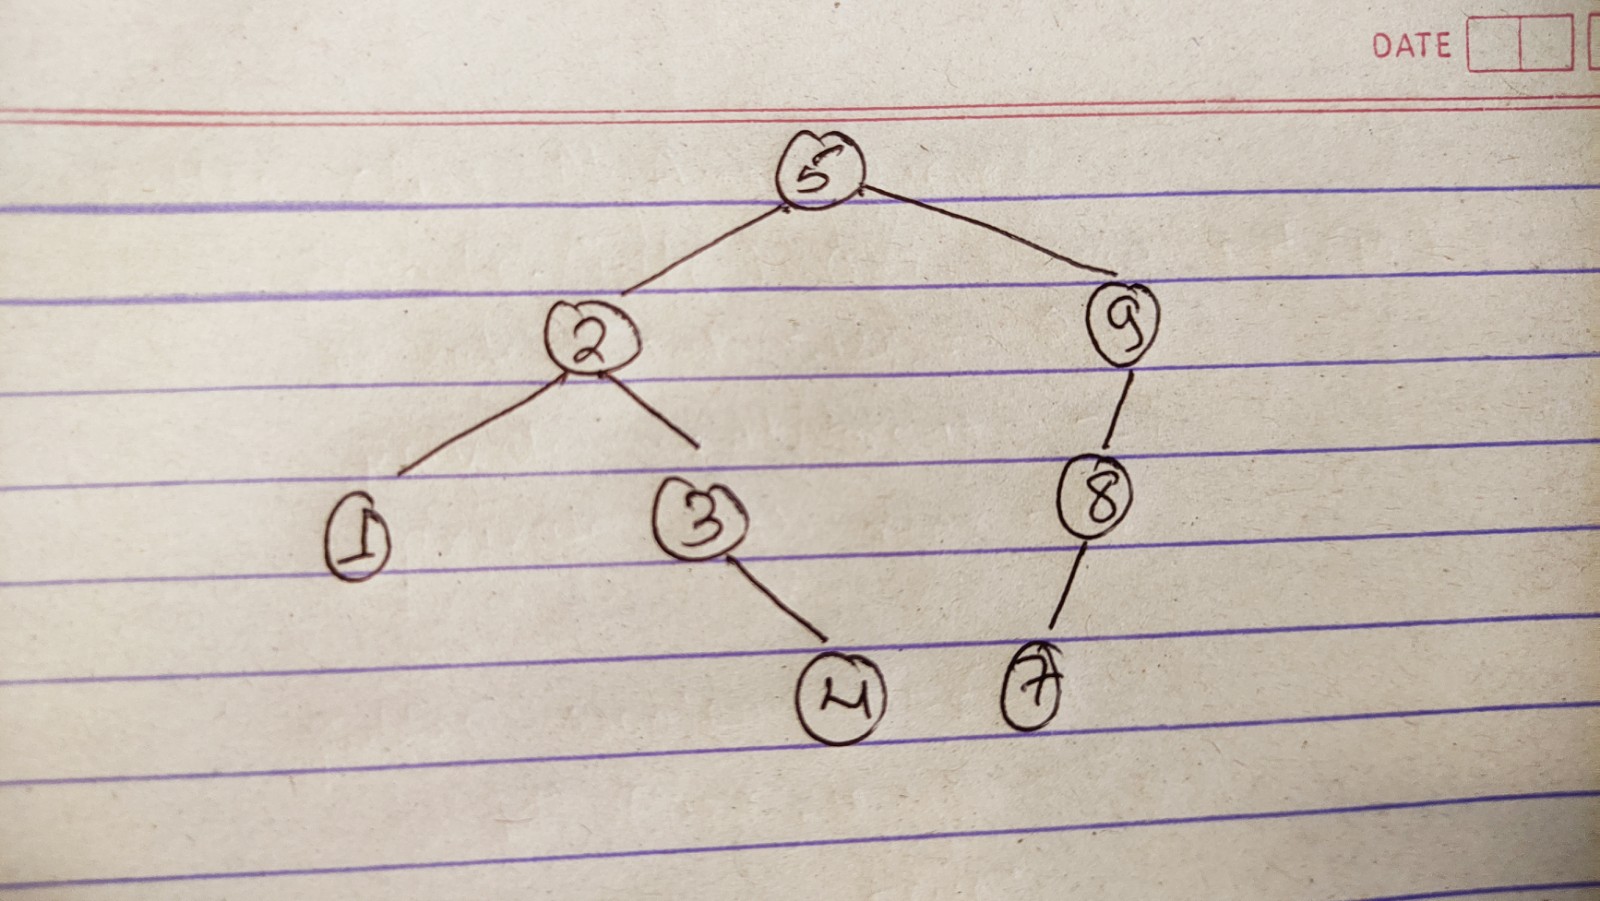 DATE
5
2 9
1 3 8
4 7